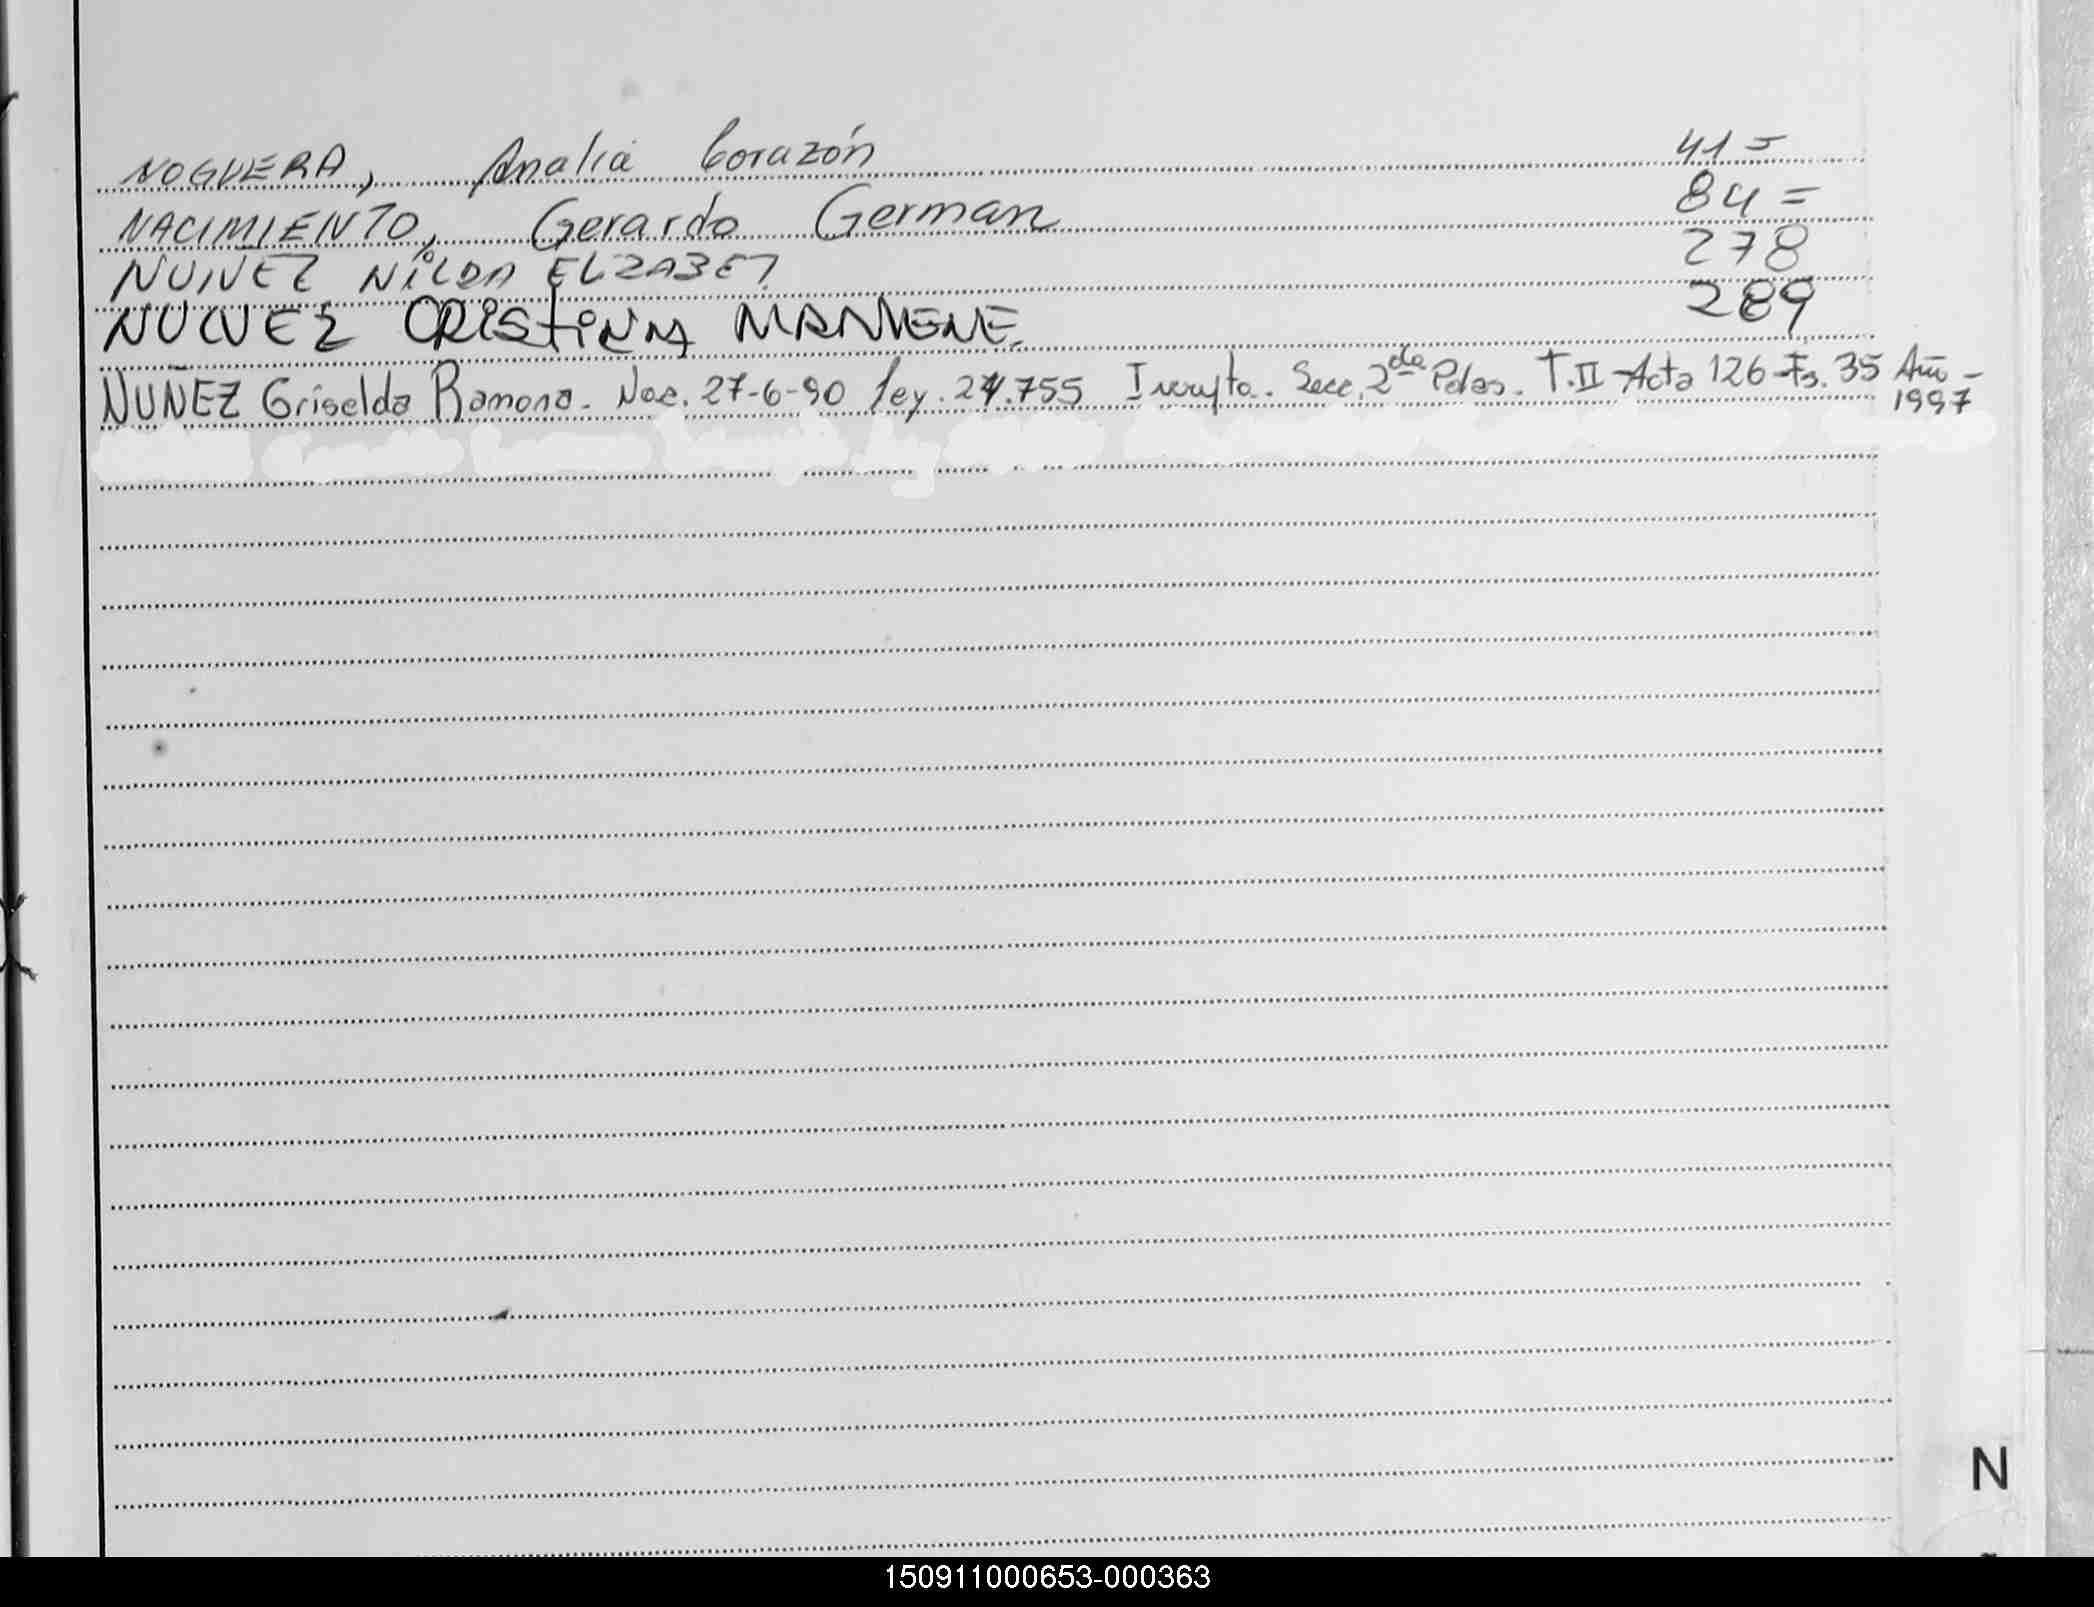 NOGUERA, Analia Corazón 41=
NACIMIENTO, Gerardo German 84=
NUÑEZ NILDA ELIZABET. 278
NUÑEZ CRISTINA MARLENE. 289
NUÑEZ Griselda Ramona. Nac. 27-6-90 Ley. 24.755 Inscripta. Secc. 2da Pdas. T.II Acta 126-Fs. 35 Año -
1997
N
150911000653-000363